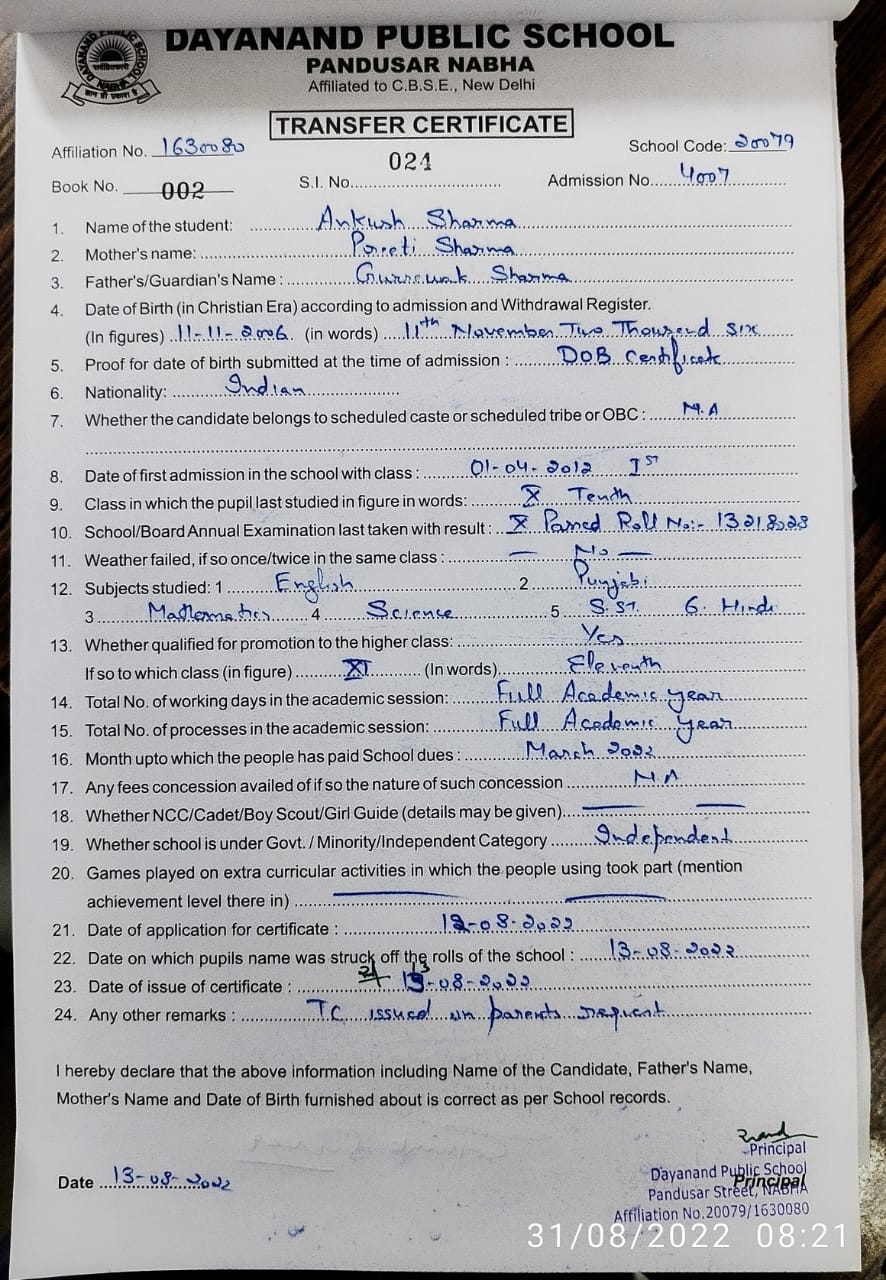 DAYANAND PUBLIC SCHOOL
PANDUSAR NABHA
Affiliated to C.B.S.E., New Delhi
TRANSFER CERTIFICATE
Affiliation No. 1630080 School Code: 20079
Book No. 002 S.I. No. 024 Admission No. 4007
1. Name of the student: Ankush Sharma
2. Mother's name: Preeti Sharma
3. Father's/Guardian's Name : Gursewak Sharma
4. Date of Birth (in Christian Era) according to admission and Withdrawal Register.
(In figures) 11-11-2006. (in words) 11th November Two Thousend Six
5. Proof for date of birth submitted at the time of admission : DOB Certificate
6. Nationality: Indian
7. Whether the candidate belongs to scheduled caste or scheduled tribe or OBC : N.A
8. Date of first admission in the school with class : 01-04-2012 Ist
9. Class in which the pupil last studied in figure in words: X Tenth
10. School/Board Annual Examination last taken with result : X Passed Roll No:- 13218228
11. Weather failed, if so once/twice in the same class : — No —
12. Subjects studied: 1 English 2 Punjabi
3 Mathematics 4 Science 5 S.ST. 6. Hindi
13. Whether qualified for promotion to the higher class: Yes
If so to which class (in figure) XI (In words) Eleventh
14. Total No. of working days in the academic session: Full Academic year
15. Total No. of processes in the academic session: Full Academic year
16. Month upto which the people has paid School dues : March 2022
17. Any fees concession availed of if so the nature of such concession N.A
18. Whether NCC/Cadet/Boy Scout/Girl Guide (details may be given). — —
19. Whether school is under Govt. / Minority/Independent Category Independent
20. Games played on extra curricular activities in which the people using took part (mention
achievement level there in) — —
21. Date of application for certificate : 12-08-2022
22. Date on which pupils name was struck off the rolls of the school : 13-08-2022
23. Date of issue of certificate : 13-08-2022
24. Any other remarks : TC issued on parents request
I hereby declare that the above information including Name of the Candidate, Father's Name,
Mother's Name and Date of Birth furnished about is correct as per School records.
Principal
Dayanand Public School
Principal
Pandusar Street, NABHA
Affiliation No.20079/1630080
Date 13-08-2022
31/08/2022 08:21